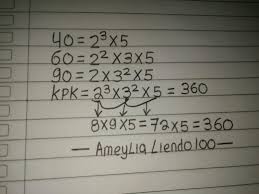 40 = 2³ x 5
60 = 2² x 3 x 5
90 = 2 x 3² x 5
KPK = 2³ x 3² x 5 = 360
8 x 9 x 5 = 72 x 5 = 360
— AmeyLia Liendo100 —